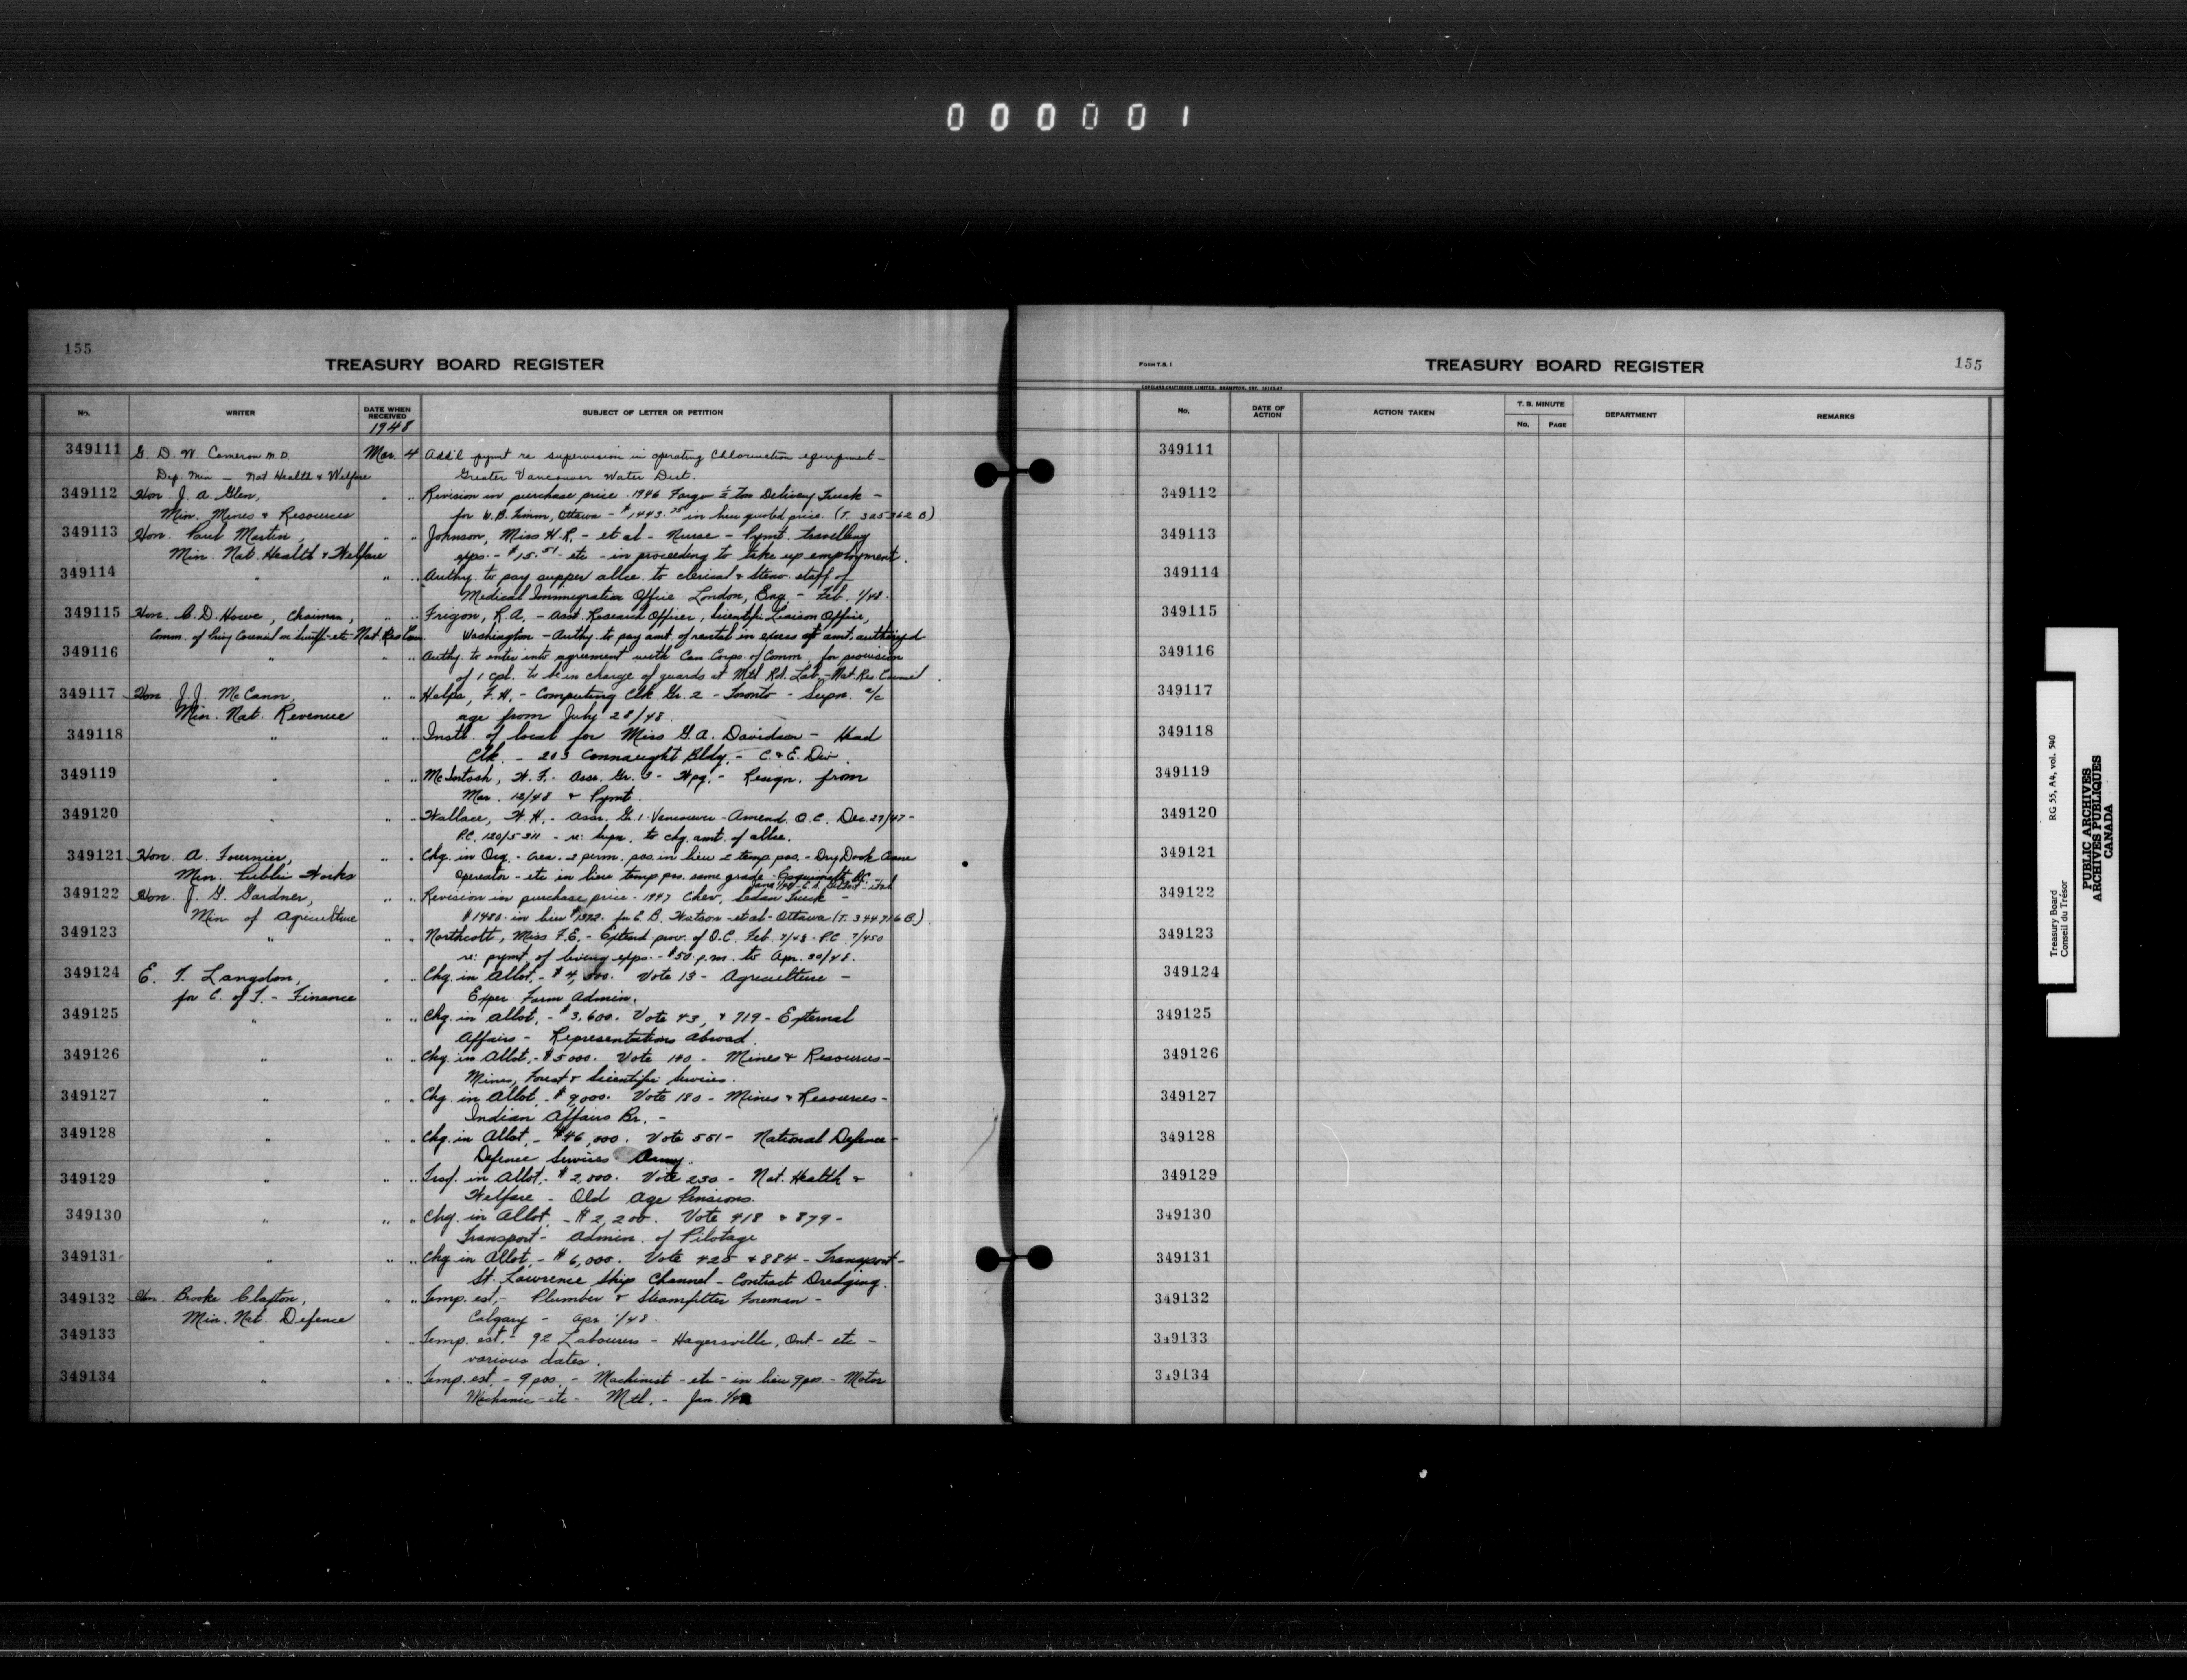 000001
155
TREASURY BOARD REGISTER
No. WRITER DATE WHEN RECEIVED SUBJECT OF LETTER OR PETITION
1948
349111 G. D. W. Cameron M.D. Mar. 4 Add'l pymt re supervision in operating Chlorination equipment -
Dep. Min - Nat Health & Welfare Greater Vancouver Water Dist.
349112 Hon. J. A. Glen, " " Revision in purchase price 1946 Fargo ½ Ton Delivery Truck -
Min. Mines & Resources for W.B. Timm, Ottawa - $1443.75 in lieu quoted price. (T. 325362 B)
349113 Hon. Paul Martin, " " Johnson, Miss H.R. - et al - Nurse - Pymt. travelling
Min. Nat. Health & Welfare exps. - $15.51 - etc - in proceeding to take up employment.
349114 " " " Authy. to pay supper allce. to clerical & Steno. staff of
Medical Immigration Office London, Eng. - Feb. 1/48.
349115 Hon. C. D. Howe, Chairman, " " Frigon, R.A. - Asst. Research Officer, Scientific Liaison Office,
Comm. of Privy Council on Scientific etc Nat. Res Coun. Washington - Authy. to pay amt. of rental in excess of amt. authorized
349116 " " " Authy. to enter into agreement with Can. Corps. of Comm. for provision
of 1 Cpl. to be in charge of guards at Mtl Rd. Lab. - Nat. Res Council.
349117 Hon. J. J. McCann, " " Helps, F. H. - Computing Clk. Gr. 2 - Toronto - Supn. a/c
Min. Nat. Revenue age from July 28/48.
349118 " " " Instl. of local for Miss G. A. Davidson - Head
Clk. - 203 Connaught Bldg. - C. & E. Div.
349119 " " " McIntosh, W. F. - Assr. Gr. 3 - Wpg. - Resign. from
Mar. 12/48 & Pymt.
349120 " " " Wallace, W. H. - Assr. Gr. 1 - Vancouver - Amend. O.C. Dec. 27/47 -
P.C. 120/5311 - re: Supn. to chg. amt. of allce.
349121 Hon. A. Fournier, " " Chg. in Org. - Crea. 2 perm. pos. in lieu 2 temp. pos. - Dry Dock Crane
Min. Public Works Operator - etc in lieu temp. pos. same grade - Esquimalt, BC -
349122 Hon. J. G. Gardner, " " Revision in purchase price - 1947 Chev. Sedan Truck -
Min of Agriculture $1480. in lieu $1372. for C. B. Watson - et al - Ottawa (T. 344716 B)
349123 " " " Northcott, Miss F.E. - Extend prov. of O.C. Feb. 7/48 - P.C. 7/450
re: pymt of living exps. - $50. p.m. to Apr. 30/48.
349124 E. T. Langdon, " " Chg. in Allot. - $4,500. Vote 13 - Agriculture -
for C. of T. - Finance Exper. Farm Admin.
349125 " " " Chg. in Allot. - $3,600. Vote 43, & 719 - External
Affairs - Representations Abroad.
349126 " " " Chg. in Allot. - $5000. Vote 140 - Mines & Resources -
Mines, Forest & Scientific Services.
349127 " " " Chg. in Allot. - $9,000. Vote 180 - Mines & Resources -
Indian Affairs Br. -
349128 " " " Chg. in Allot. - $46,000. Vote 551 - National Defence -
Defence Services Army.
349129 " " " Trsf. in Allot. - $2,000. Vote 230 - Nat. Health &
Welfare - Old Age Pensions.
349130 " " " Chg. in Allot. - $2,200. Vote 418 & 879 -
Transport - Admin. of Pilotage
349131 " " " Chg. in Allot. - $6,000. Vote 425 & 884 - Transport -
St. Lawrence Ship Channel - Contract Dredging.
349132 Hon. Brooke Claxton, " " Temp. est. - Plumber & Steamfitter Foreman -
Min. Nat. Defence Calgary - Apr. 1/48.
349133 " " " Temp. est. - 92 Labourers - Hagersville, Ont - etc -
various dates.
349134 " " " Temp. est. - 9 pos. - Machinist - etc - in lieu 9 pos - Motor
Mechanic - etc - Mtl. - Jan. 1/48
FORM T.B. 1
TREASURY BOARD REGISTER
155
COPELAND-CHATTERSON LIMITED, BRAMPTON, ONT.
No. DATE OF ACTION ACTION TAKEN T. B. MINUTE No. PAGE DEPARTMENT REMARKS
349111
349112
349113
349114
349115
349116
349117
349118
349119
349120
349121
349122
349123
349124
349125
349126
349127
349128
349129
349130
349131
349132
349133
349134
Treasury Board RG 55, A4, vol. 540
Conseil du Trésor
PUBLIC ARCHIVES
ARCHIVES PUBLIQUES
CANADA